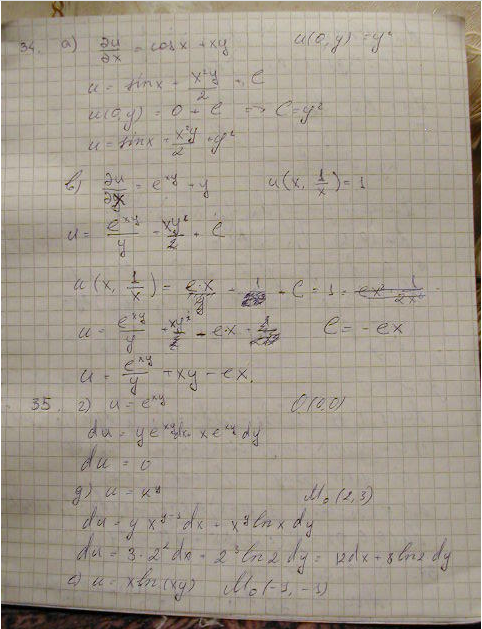 34. а) ∂u/∂x = cos x + xy    u(0,y) = y²
u = sin x + x²y/2 + C
u(0,y) = 0 + C → C = y²
u = sin x + x²y/2 + y²
в) ∂u/∂x = e^xy + y    u(x, 1/x) = 1
u = e^xy/y + + C
u(x, 1/x) = + C = 1 =
u = e^xy/y - ex    C = -ex
u = e^xy/y + xy - ex.
35. г) u = e^xy    O(0,0)
du = y e^xy dx + x e^xy dy
du = 0
д) u = x^y    M₀(2,3)
du = y x^y-1 dx + x^y ln x dy
du = 3·2² dx + 2³ ln2 dy = 12dx + 8 ln2 dy
е) u = x ln(xy)    M₀(-1, -1)